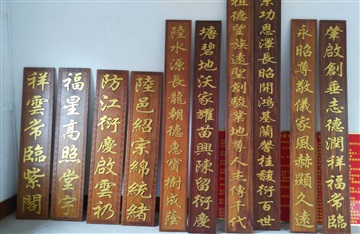 肇啟創垂志德潤祥福常臨
永昭尊敬儀家風赫顯久遠
宗功恩澤長昭開鴻基蘭馨桂馥衍百世
祖德望族遠聖創駿業地尊人主傳千代
塘碧地沃家耀苗興陳留衍慶
陸水源長龍朝德惠寶樹成蔭
陸邑紹宗綿統緒
防江衍慶啟雲礽
福星高照堂亭
祥雲常臨紫閣